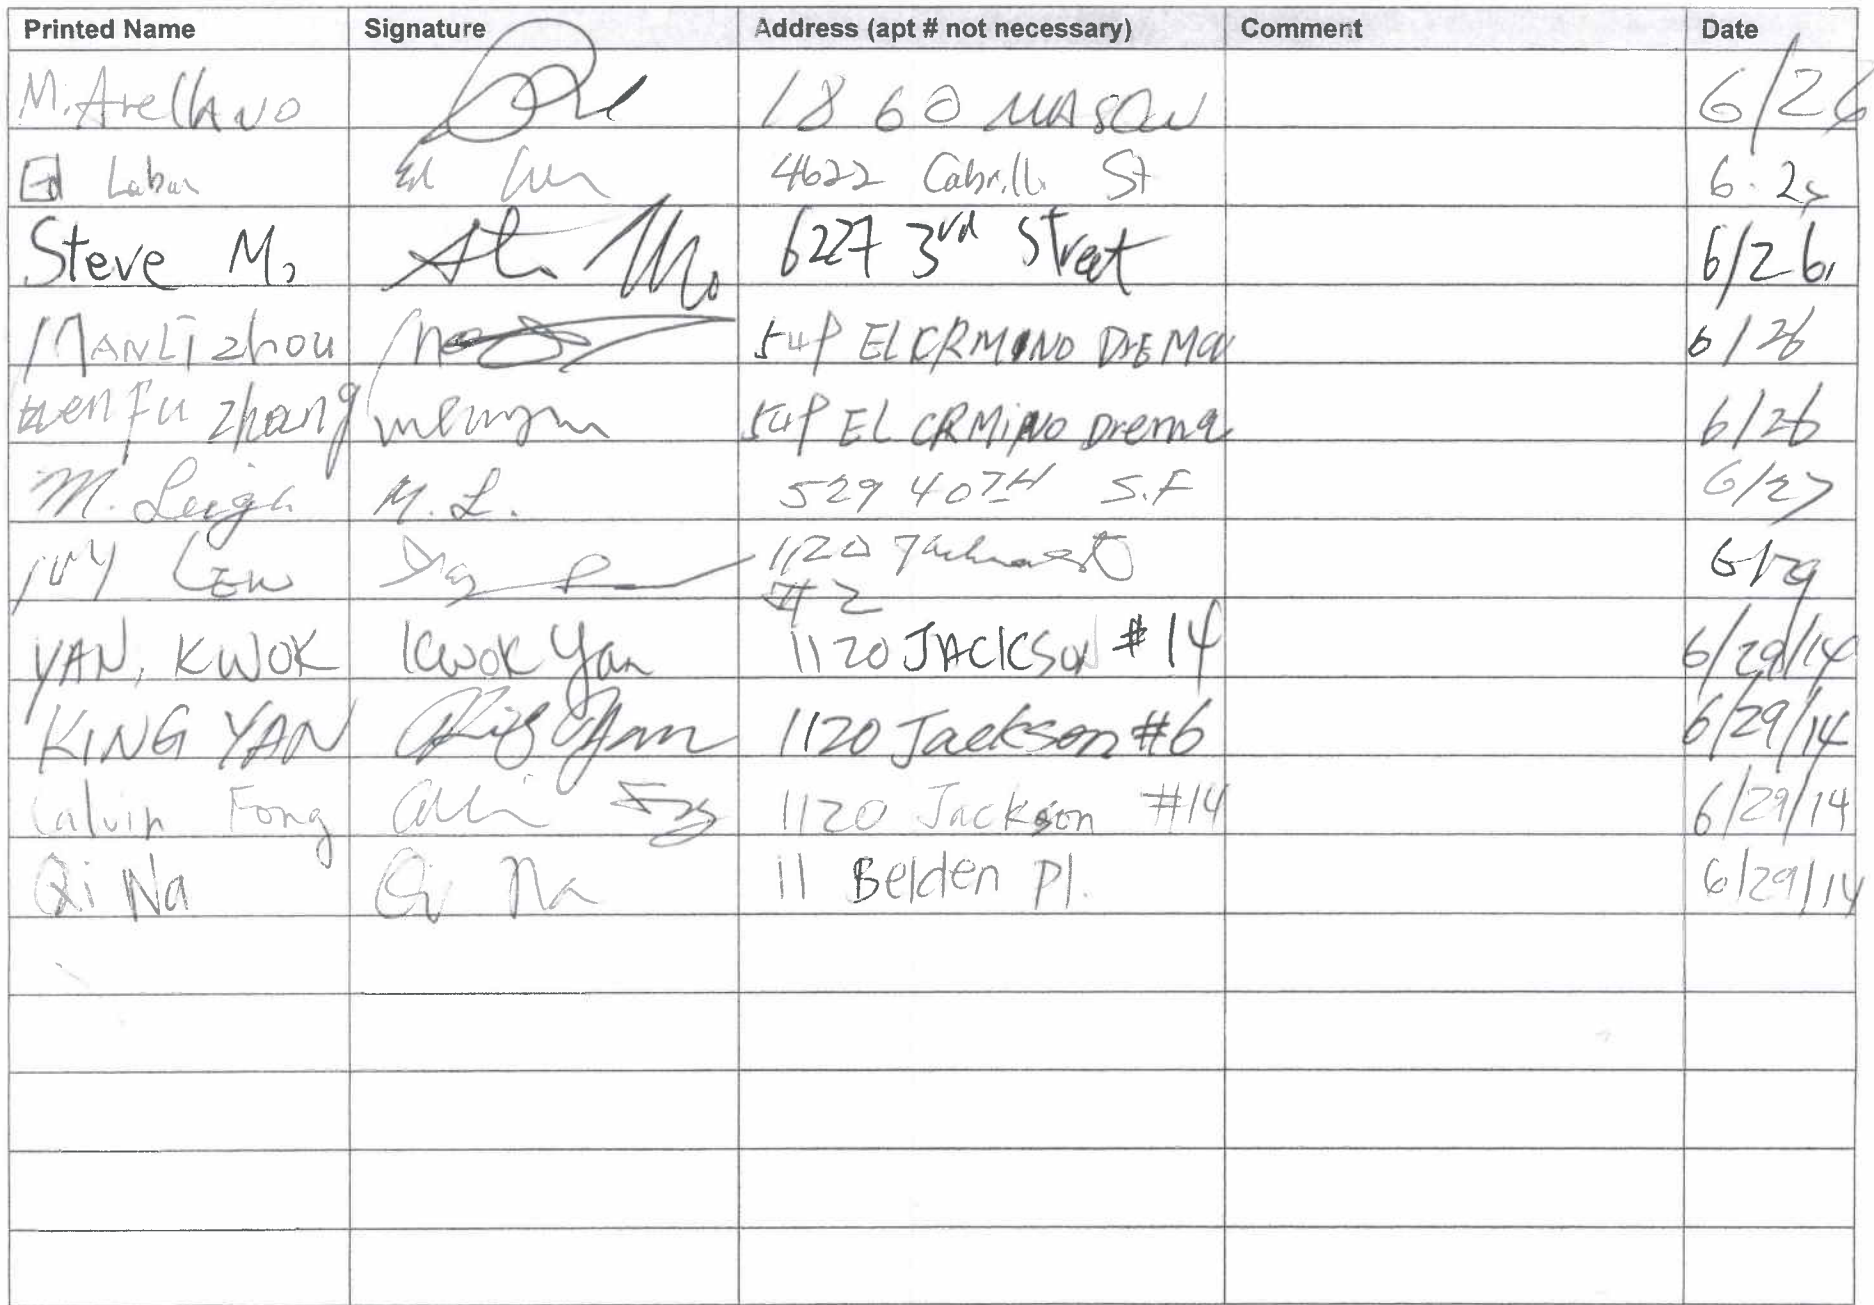 Printed Name Signature Address (apt # not necessary) Comment Date
M. Arellano 1860 MASON 6/26
Ed Laban Ed 4622 Cabrillo St 6.25
Steve M. 6227 3rd Street 6/26
MANLI zhou EL CRMINO DREMAR 6/26
wenFu zhang EL CRMINO Drema 6/26
M. Leigh M. L. 529 40TH S.F 6/27
IVY LEW 1120 Jackson St 6/29
#2
YAN, KWOK Kwok Yan 1120 JACKSON #14 6/29/14
KING YAN King Yan 1120 Jackson #6 6/29/14
Calvin Fong Calvin Fong 1120 Jackson #14 6/29/14
Qi Na Qi Na 11 Belden Pl. 6/29/14